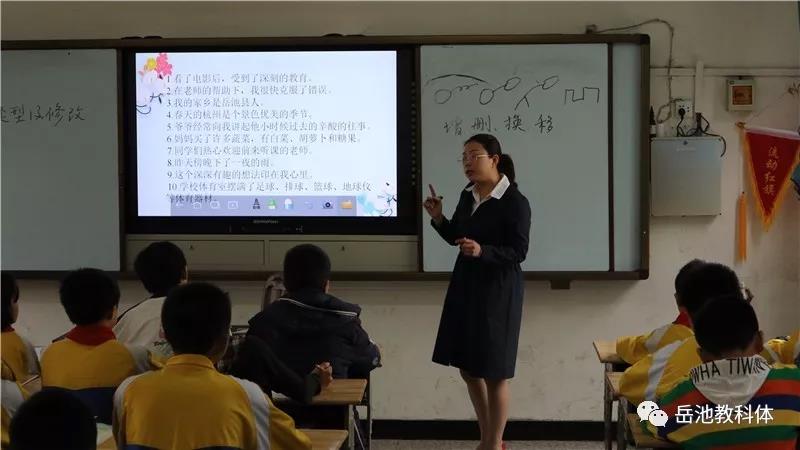 型及修改
1.看了电影后，受到了深刻的教育。
2.在老师的帮助下，我很快克服了错误。
3.我的家乡是岳池县人。
4.春天的杭州是个景色优美的季节。
5.爷爷经常向我讲起他小时候过去的辛酸的往事。
6.妈妈买了许多蔬菜，有白菜、胡萝卜和糖果。
7.同学们热心欢迎前来听课的老师。
8.昨天傍晚下了一夜的雨。
9.这个深深有趣的想法印在我心里。
10.学校体育室摆满了足球、排球、篮球、地球仪
等体育器材。
增 删 换 移
流动红旗
WHA TIW
岳池教科体